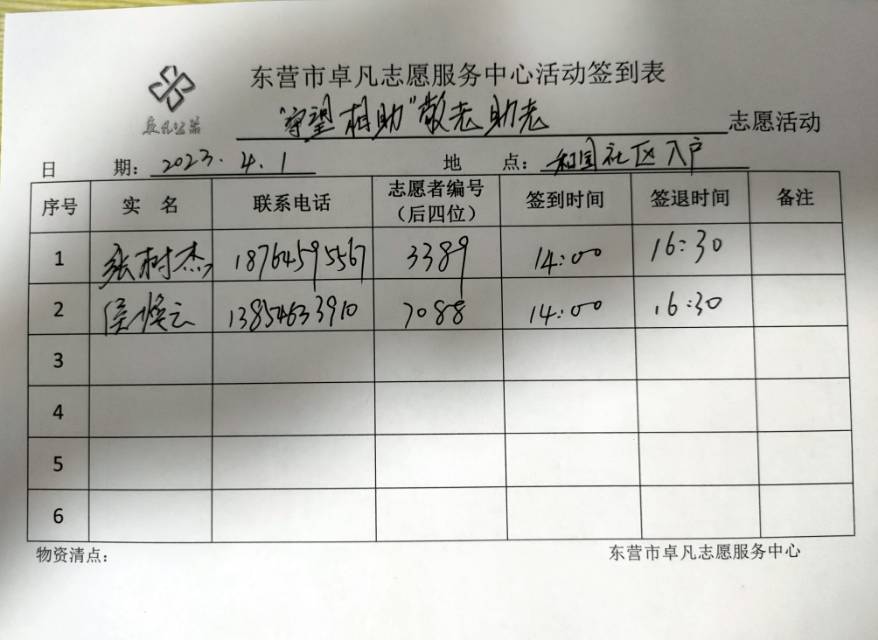 东营市卓凡志愿服务中心活动签到表
卓凡公益
"守望相助"敬老助老 志愿活动
日 期: 2023.4.1 地 点: 和园社区入户
序号 实 名 联系电话 志愿者编号（后四位） 签到时间 签退时间 备注
1 张树杰 18764595567 3389 14:00 16:30
2 侯焕云 13854633910 7088 14:00 16:30
3
4
5
6
物资清点: 东营市卓凡志愿服务中心